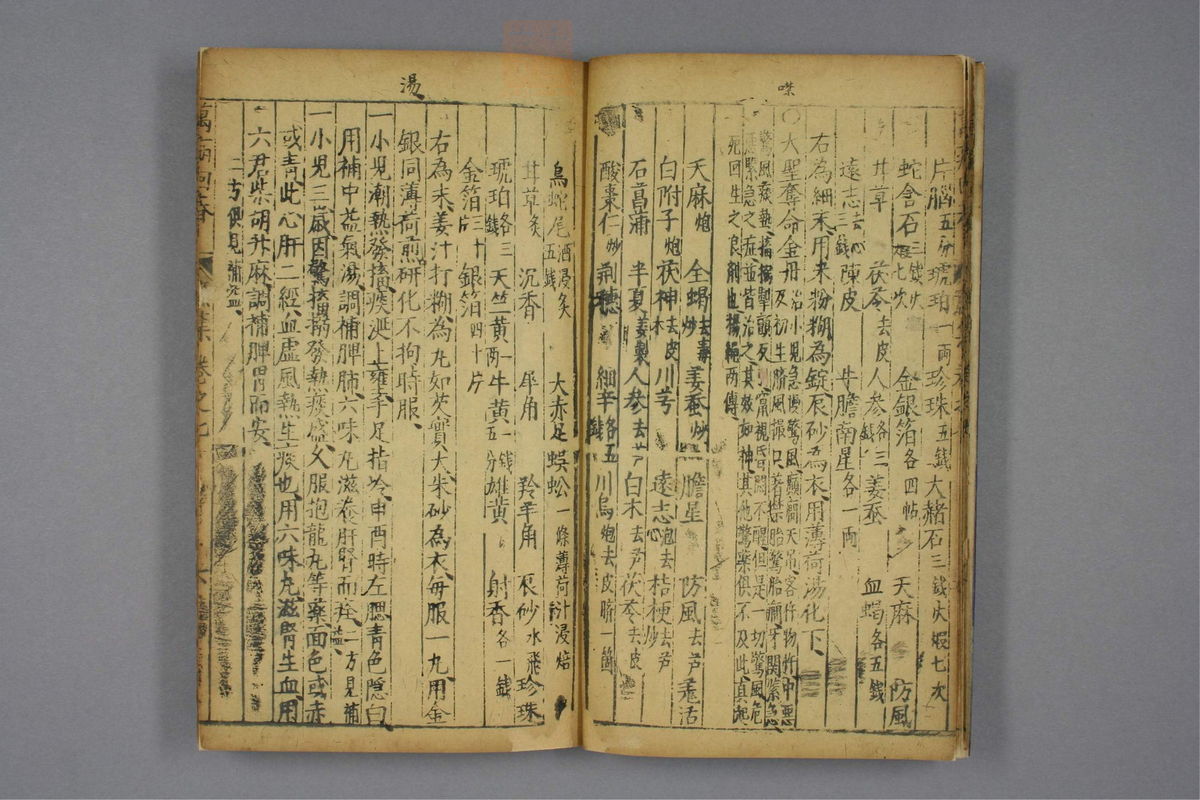 㗖
片腦五分琥珀一兩珍珠五錢大赭石三錢火煆七次
蛇含石三錢火煆七次 金銀箔各四帖 天麻 防風
甘草 茯苓去皮人參各三錢姜蚕 血蝎各五錢
遠志去心三錢陳皮 牛膽南星各一兩
右為細末用米粉糊為錠辰砂為衣用薄荷湯化下
○大聖奪命金丹治小兒急慢驚風癲癇天吊客忤物忤中惡
及初生臍風撮口著禁胎驚胎癇牙關緊急
驚風痰熱搐搦掣顫反引竄視昏悶不醒但是一切驚風危
惡緊急之症並皆治之其效如神其他驚藥俱不及此真起
死回生之良劑也楊繩兩傳
天麻炮 全蝎去毒炒 姜蚕炒 膽星 防風去芦 羌活
白附子炮茯神去皮木川芎 遠志泡去心桔梗去芦炒
石菖蒲 半夏姜製人參去芦白术去芦茯苓去皮
酸棗仁炒 荊穗 細辛各五錢川烏炮去皮臍一箇
湯
烏蛇尾酒浸炙五錢 大赤足蜈蚣一條薄荷汁浸焙
甘草炙 沉香 犀角 羚羊角 辰砂水飛珍珠
琥珀各三錢 天竺黃一兩牛黃一錢五分雄黃 射香各一錢
金箔三十片 銀箔四十片
右為末姜汁打糊為丸如芡實大朱砂為衣每服一丸用金
銀同薄荷煎研化不拘時服
一小兒潮熱發搐痰涎上壅手足指冷申酉時左腮青色隱白
用補中益氣湯調補脾肺六味丸滋養肝腎而痊二方見補益
一小兒三歲因驚搐搦發熱痰盛久服抱龍丸等藥面色或赤
或青此心肝二經血虛風熱生痰也用六味丸滋腎生血用
六君柴胡升麻調補脾胃而安
二方俱見補益
萬病回春 卷之七